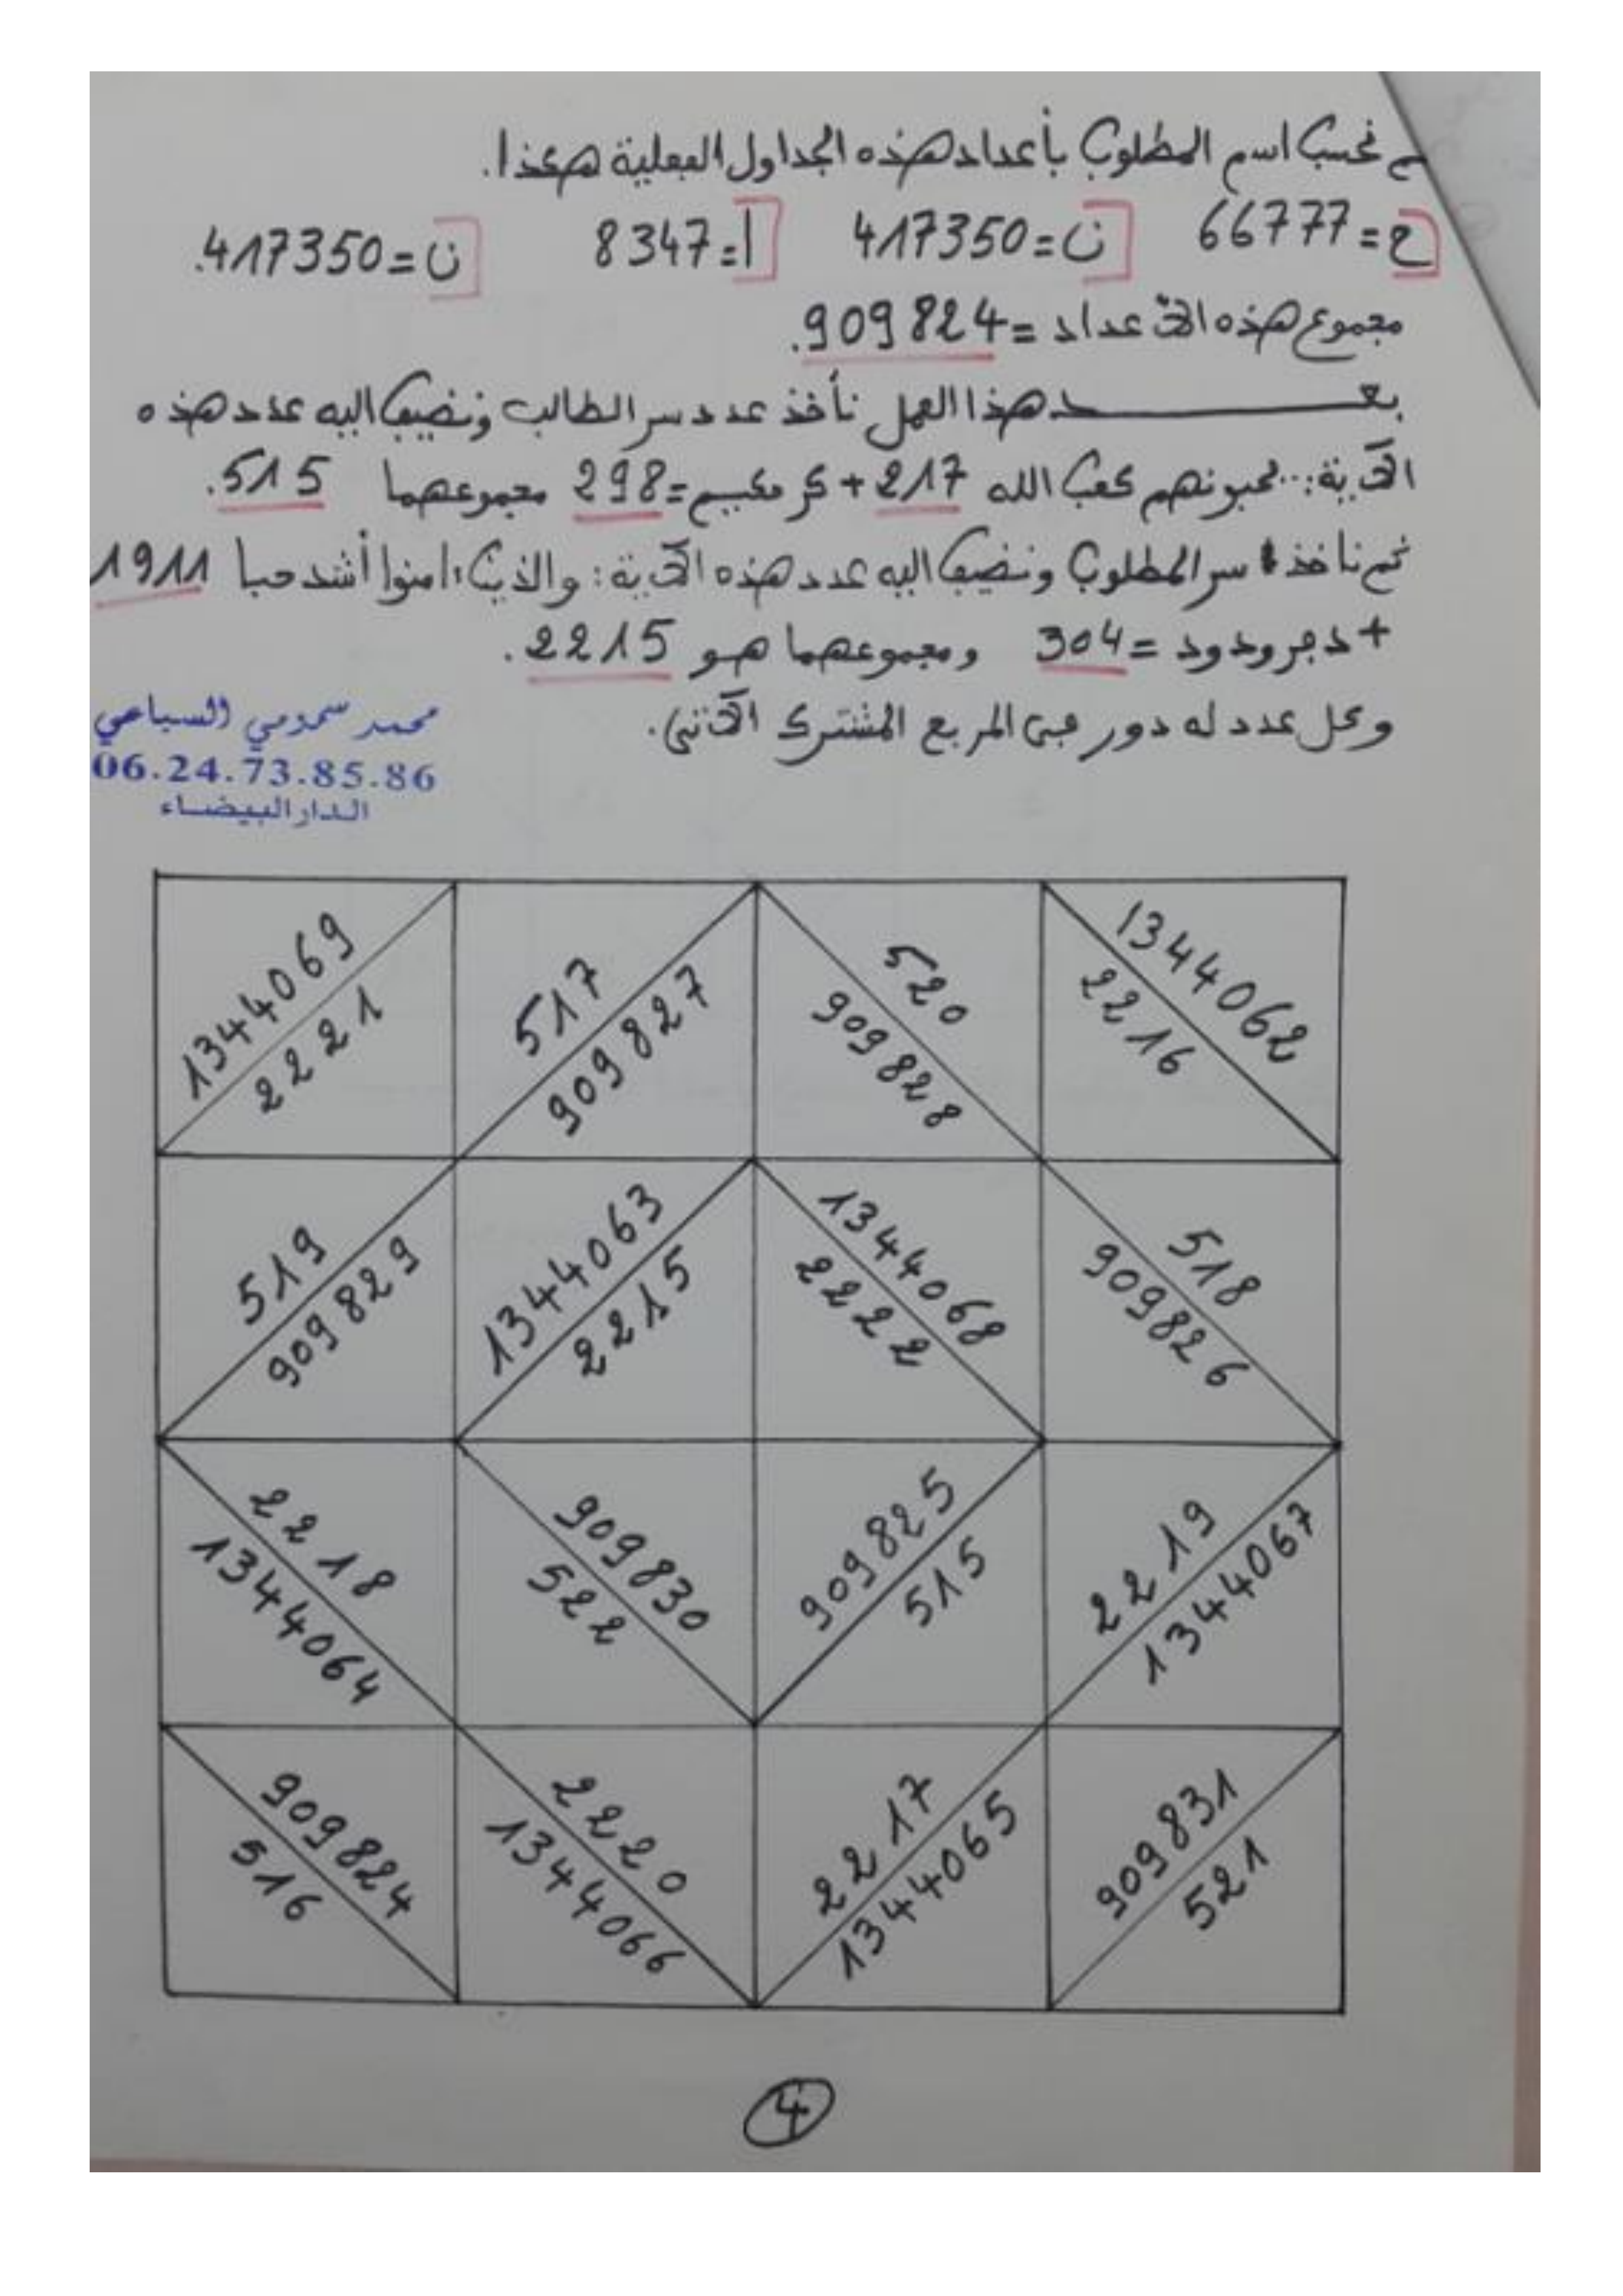 ثم نحسب اسم المطلوب بأعداد هذه الجداول الفعلية هكذا.
ح=66777 ن=417350 ا=8347 ن=417350.
مجموع هذه الأعداد =909824.
بعـــــد هذا العمل نأخذ عدد سر الطالب ونضيف اليه عدد هذه
الآية:..يحبونهم كحب الله 217+كر مكيم=298 مجموعهما 515.
ثم نأخذ سر المطلوب ونضيف اليه عدد هذه الآية: والذين ءامنوا أشد حبا 1911
+ دجرودود =304 ومجموعهما هو 2215.
وكل عدد له دور في المربع المشترك الآتي.
محمد سمومي السباعي
06.24.73.85.86
الدار البيضاء
1344069 517 520 1344062
2221 909827 909828 2216
519 1344063 1344068 518
909829 2215 2222 909826
2218 909830 909825 2219
1344064 522 515 1344067
909824 2220 2217 909831
516 1344066 1344065 521
4